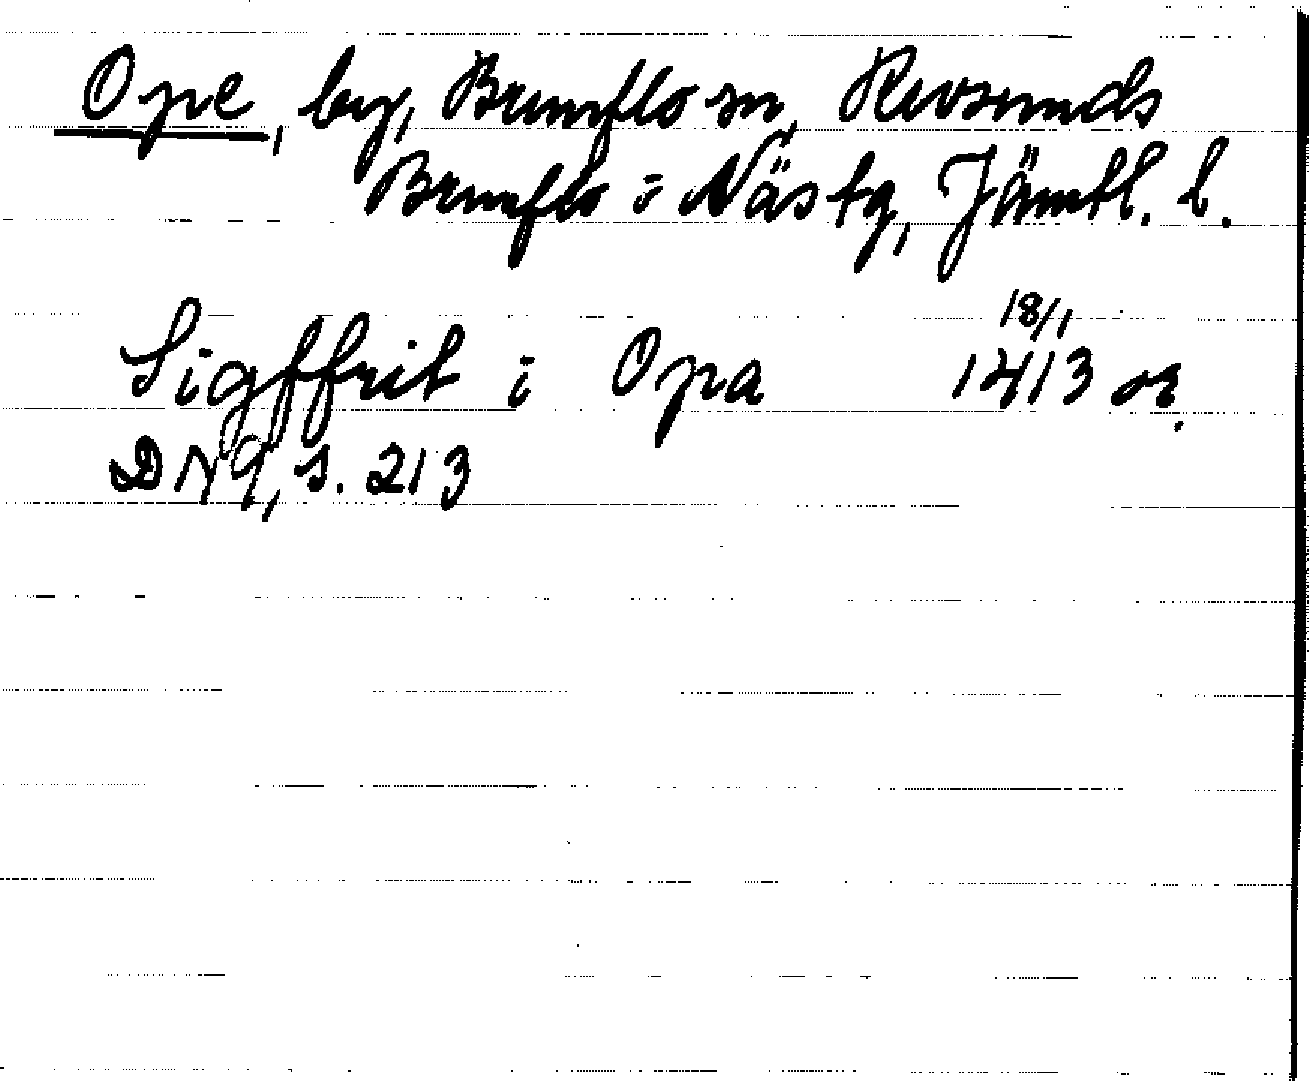 Ope, by, Brunflo sn, Revsunds
Brunflo o Näs tg, Jämtl. l.
18/1
Sigffrit i Opa 1413 or.
DN 9, s. 213